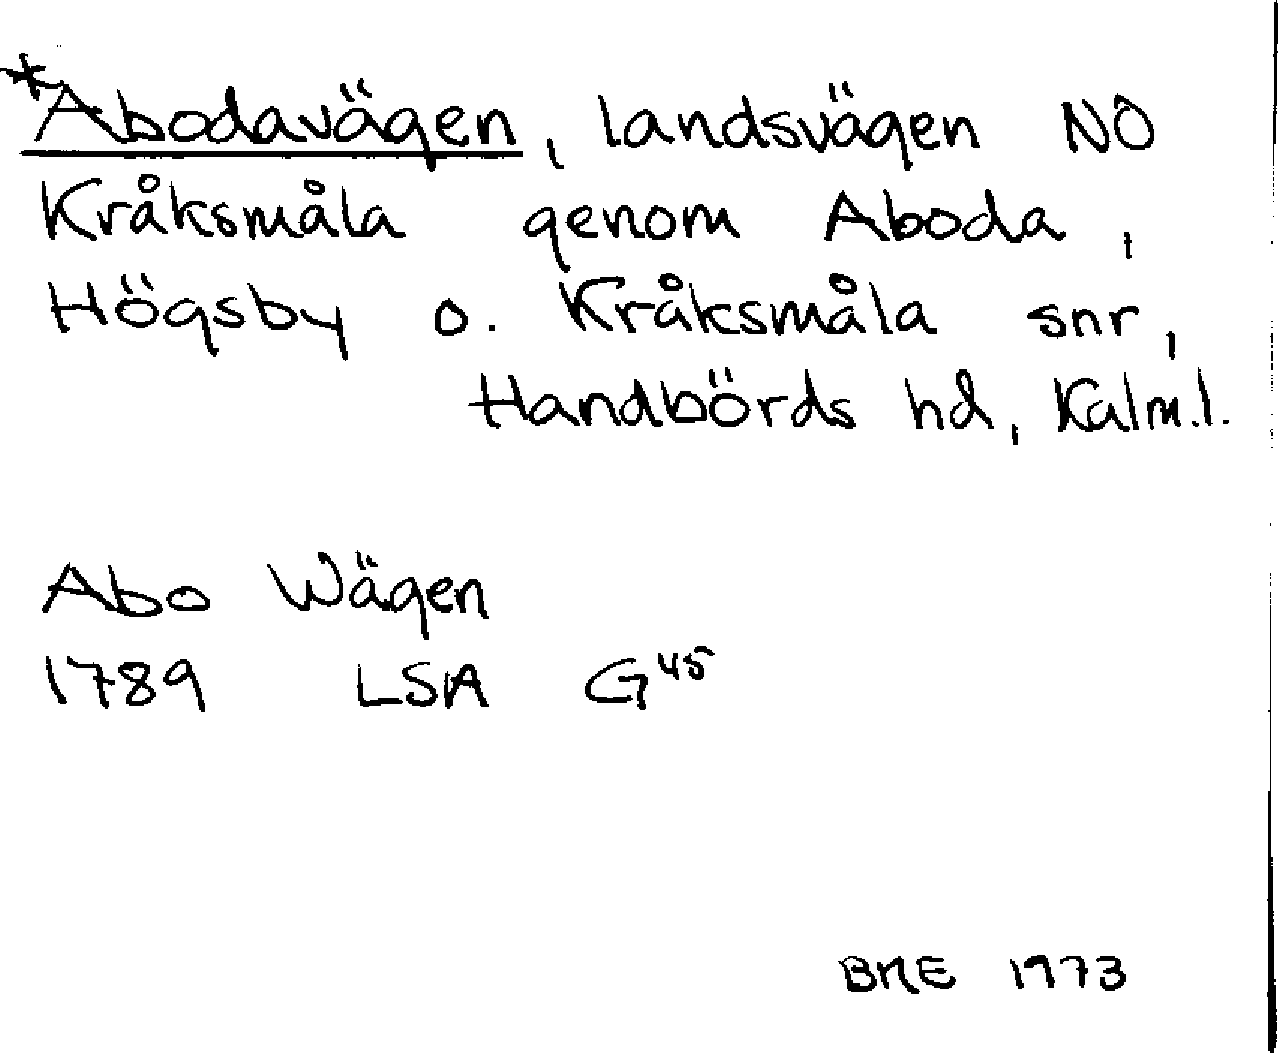 *Abodavägen, landsvägen NÖ
Kråksmåla genom Aboda,
Högsby o. Kråksmåla snr,
Handbörds hd, Kalm.l.
Abo Wägen
1789 LSA G45
BME 1973